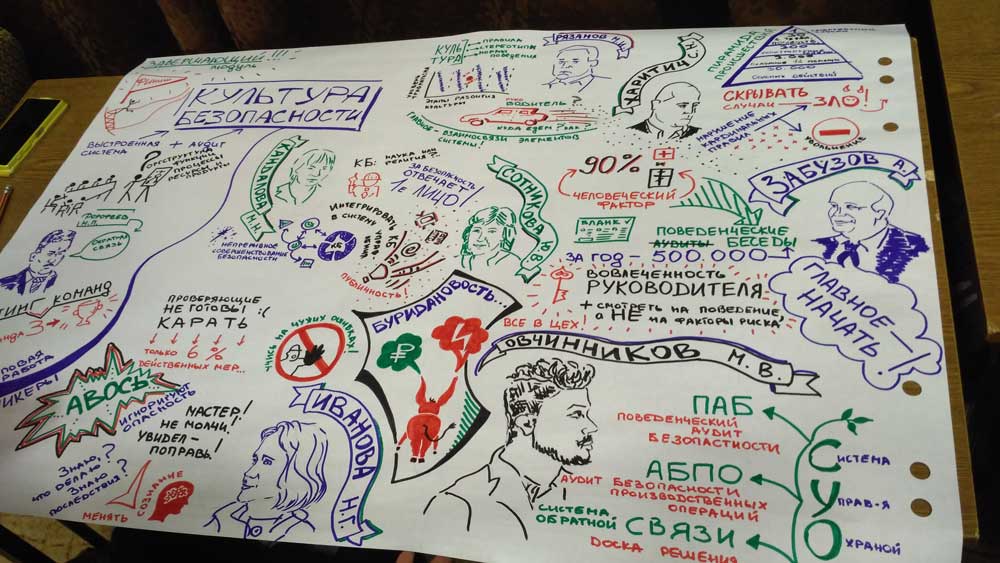 ЗАВЕРШАЮЩИЙ!!!
модуль
ФИНИШ
КУЛЬТУРА
БЕЗОПАСНОСТИ
ВЫСТРОЕННАЯ + АУДИТ
СИСТЕМА
ОРГСТРУКТУРА
ФУНКЦИИ
ПРОЦЕССЫ
РЕСУРСЫ
?
ДОРОФЕЕВ
Н.П.
ОБРАТНАЯ
СВЯЗЬ
КАНДАЛОВА Н.Н.
КУЛЬ
ТУРА
ПРАВИЛА
СТЕРЕОТИПЫ
НОРМЫ
ПОВЕДЕНИЯ
ЭТАПЫ РАЗВИТИЯ
КУЛЬТУРЫ
РЯЗАНОВ Н.Ц.
ВОДИТЕЛЬ?
КУДА ЕДЕМ? КАК?
ГЛАВНОЕ - ВЗАИМОСВЯЗИ ЭЛЕМЕНТОВ
СИСТЕМЫ!
ХАРИТИЧ С.Н.
ПИРАМИДА
ПРОИСШЕСТВИЙ
300
30.000
ОПАСНЫХ ДЕЙСТВИЙ
СКРЫВАТЬ
СЛУЧАИ - ЗЛО!
НАРУШЕНИЕ
КАРДИНАЛЬНЫХ
ПРАВИЛ
УВОЛЬНЕНИЕ
КБ: НАУКА ИЛИ
РЕЛИГИЯ?
ЗА БЕЗОПАСНОСТЬ
ОТВЕЧАЕТ
1е ЛИЦО!
НЕПРЕРЫВНОЕ
СОВЕРШЕНСТВОВАНИЕ
БЕЗОПАСНОСТИ
КБ
ИНТЕГРИРОВАТЬ КБ
В СИСТЕМУ
УПРАВЛЕНИЯ
ПУБЛИЧНОСТЬ!
СОТНИКОВА Ю.В.
90%
ЧЕЛОВЕЧЕСКИЙ
ФАКТОР
БЛАНК
ПОВЕДЕНЧЕСКИЕ
АУДИТЫ БЕСЕДЫ
ЗА ГОД - 500.000
ЗАБУЗОВ А.
ВОВЛЕЧЕННОСТЬ
РУКОВОДИТЕЛЯ
+ СМОТРЕТЬ НА ПОВЕДЕНИЕ,
а НЕ НА ФАКТОРЫ РИСКА
ВСЕ В ЦЕХ!
ГЛАВНОЕ —
НАЧАТЬ!
ТИНГ КОМАНД
3
ПОВАЯ
РАБОТА
ИКЕРЫ
ПРОВЕРЯЮЩИЕ
НЕ ГОТОВЫ :(
КАРАТЬ
ТОЛЬКО 6%
ДЕЙСТВЕННЫХ МЕР...
УЧИСЬ НА ЧУЖИХ ОШИБКАХ!
БУРИДАНОВОСТЬ...
₽
АВОСЬ
ИГНОРИРУЮТ
ОПАСНОСТЬ
МАСТЕР!
НЕ МОЛЧИ.
УВИДЕЛ -
ПОПРАВЬ!
ЗНАЮ,
ЧТО ДЕЛАЮ?
ЗНАЮ
ПОСЛЕДСТВИЯ?
МЕНЯТЬ
СОЗНАНИЕ
ИВАНОВА Н.Г.
ОВЧИННИКОВ М.В.
ПАБ
ПОВЕДЕНЧЕСКИЙ
АУДИТ
БЕЗОПАСТНОСТИ
АБПО
АУДИТ БЕЗОПАСНОСТИ
ПРОИЗВОДСТВЕННЫХ
ОПЕРАЦИЙ
СИСТЕМА
ОБРАТНОЙ СВЯЗИ
ДОСКА РЕШЕНИЯ
СИСТЕМА
УПРАВ-Я
ОХРАНОЙ